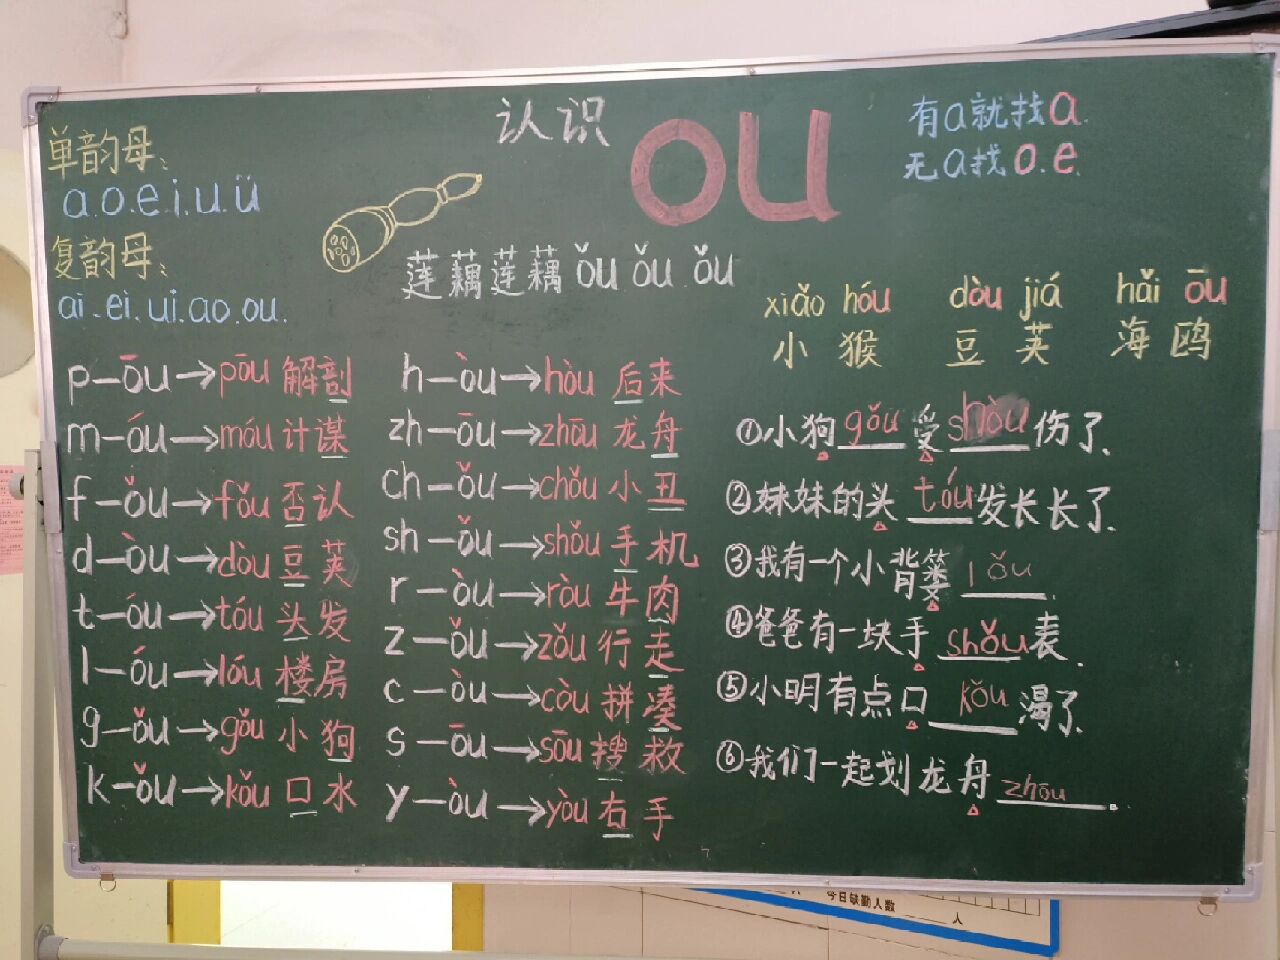 认识 ou
有a就找a.
无a找o.e.
单韵母:
a.o.e.i.u.ü
复韵母:
ai.ei.ui.ao.ou.
莲藕莲藕 ǒu ǒu ǒu
xiǎo hóu dòu jiá hǎi ōu
小猴 豆荚 海鸥
p-ōu→pōu 解剖
m-óu→móu 计谋
f-ǒu→fǒu 否认
d-òu→dòu 豆荚
t-óu→tóu 头发
l-óu→lóu 楼房
g-ǒu→gǒu 小狗
k-ǒu→kǒu 口水
h-òu→hòu 后来
zh-ōu→zhōu 龙舟
ch-ǒu→chǒu 小丑
sh-ǒu→shǒu 手机
r-òu→ròu 牛肉
z-ǒu→zǒu 行走
c-òu→còu 拼凑
s-ōu→sōu 搜救
y-òu→yòu 右手
①小狗gǒu受shòu伤了.
②妹妹的头tóu发长长了.
③我有一个小背篓lǒu.
④爸爸有一块手shǒu表.
⑤小明有点口kǒu渴了.
⑥我们一起划龙舟zhōu.
今日缺勤人数 人